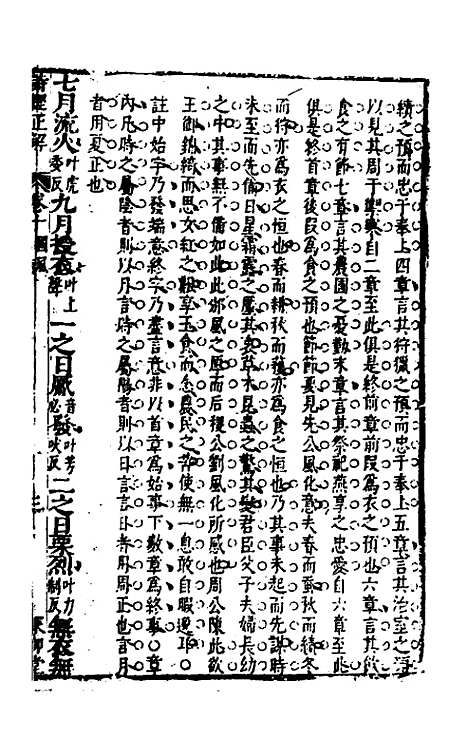 績之預而忠于奉上四章言其狩獵之預而忠于奉上五章言其治室之
以見其周于禦寒自二章至此俱是終前章前段爲衣之預也六章言其飲
食之有節七章言其農圃之憂勤末章言其祭祀燕享之忠愛自六章至此
俱是終首章後段爲食之預也節節要見先公風化意夫春而蠶秋而績冬
而狩亦爲衣之恒也春而耕秋而穫亦爲食之恒也乃其事未起而先謀時
未至而先備日星霜露之屬其變草木昆蟲之驚其候君臣父子夫婦長幼
之中其事無不備如此此豳風之厚而后稷公劉風化所感也周公陳此欲
王御熱絺而思女紅之艱享玉食而念農民之苦使無一息敢自暇逸耳〇
註中始字乃發端意終字乃盡言意非以首章爲始事下數章爲終事〇章
內凡時之屬陰者則以月言時之屬陽者則以日言言日者用周正也言月
者用夏正也
七月流火叶虎委反九月授衣叶上聲一之日觱音必發叶方吠反二之日栗烈叶力制反無衣無
詩經正解 卷十 國風